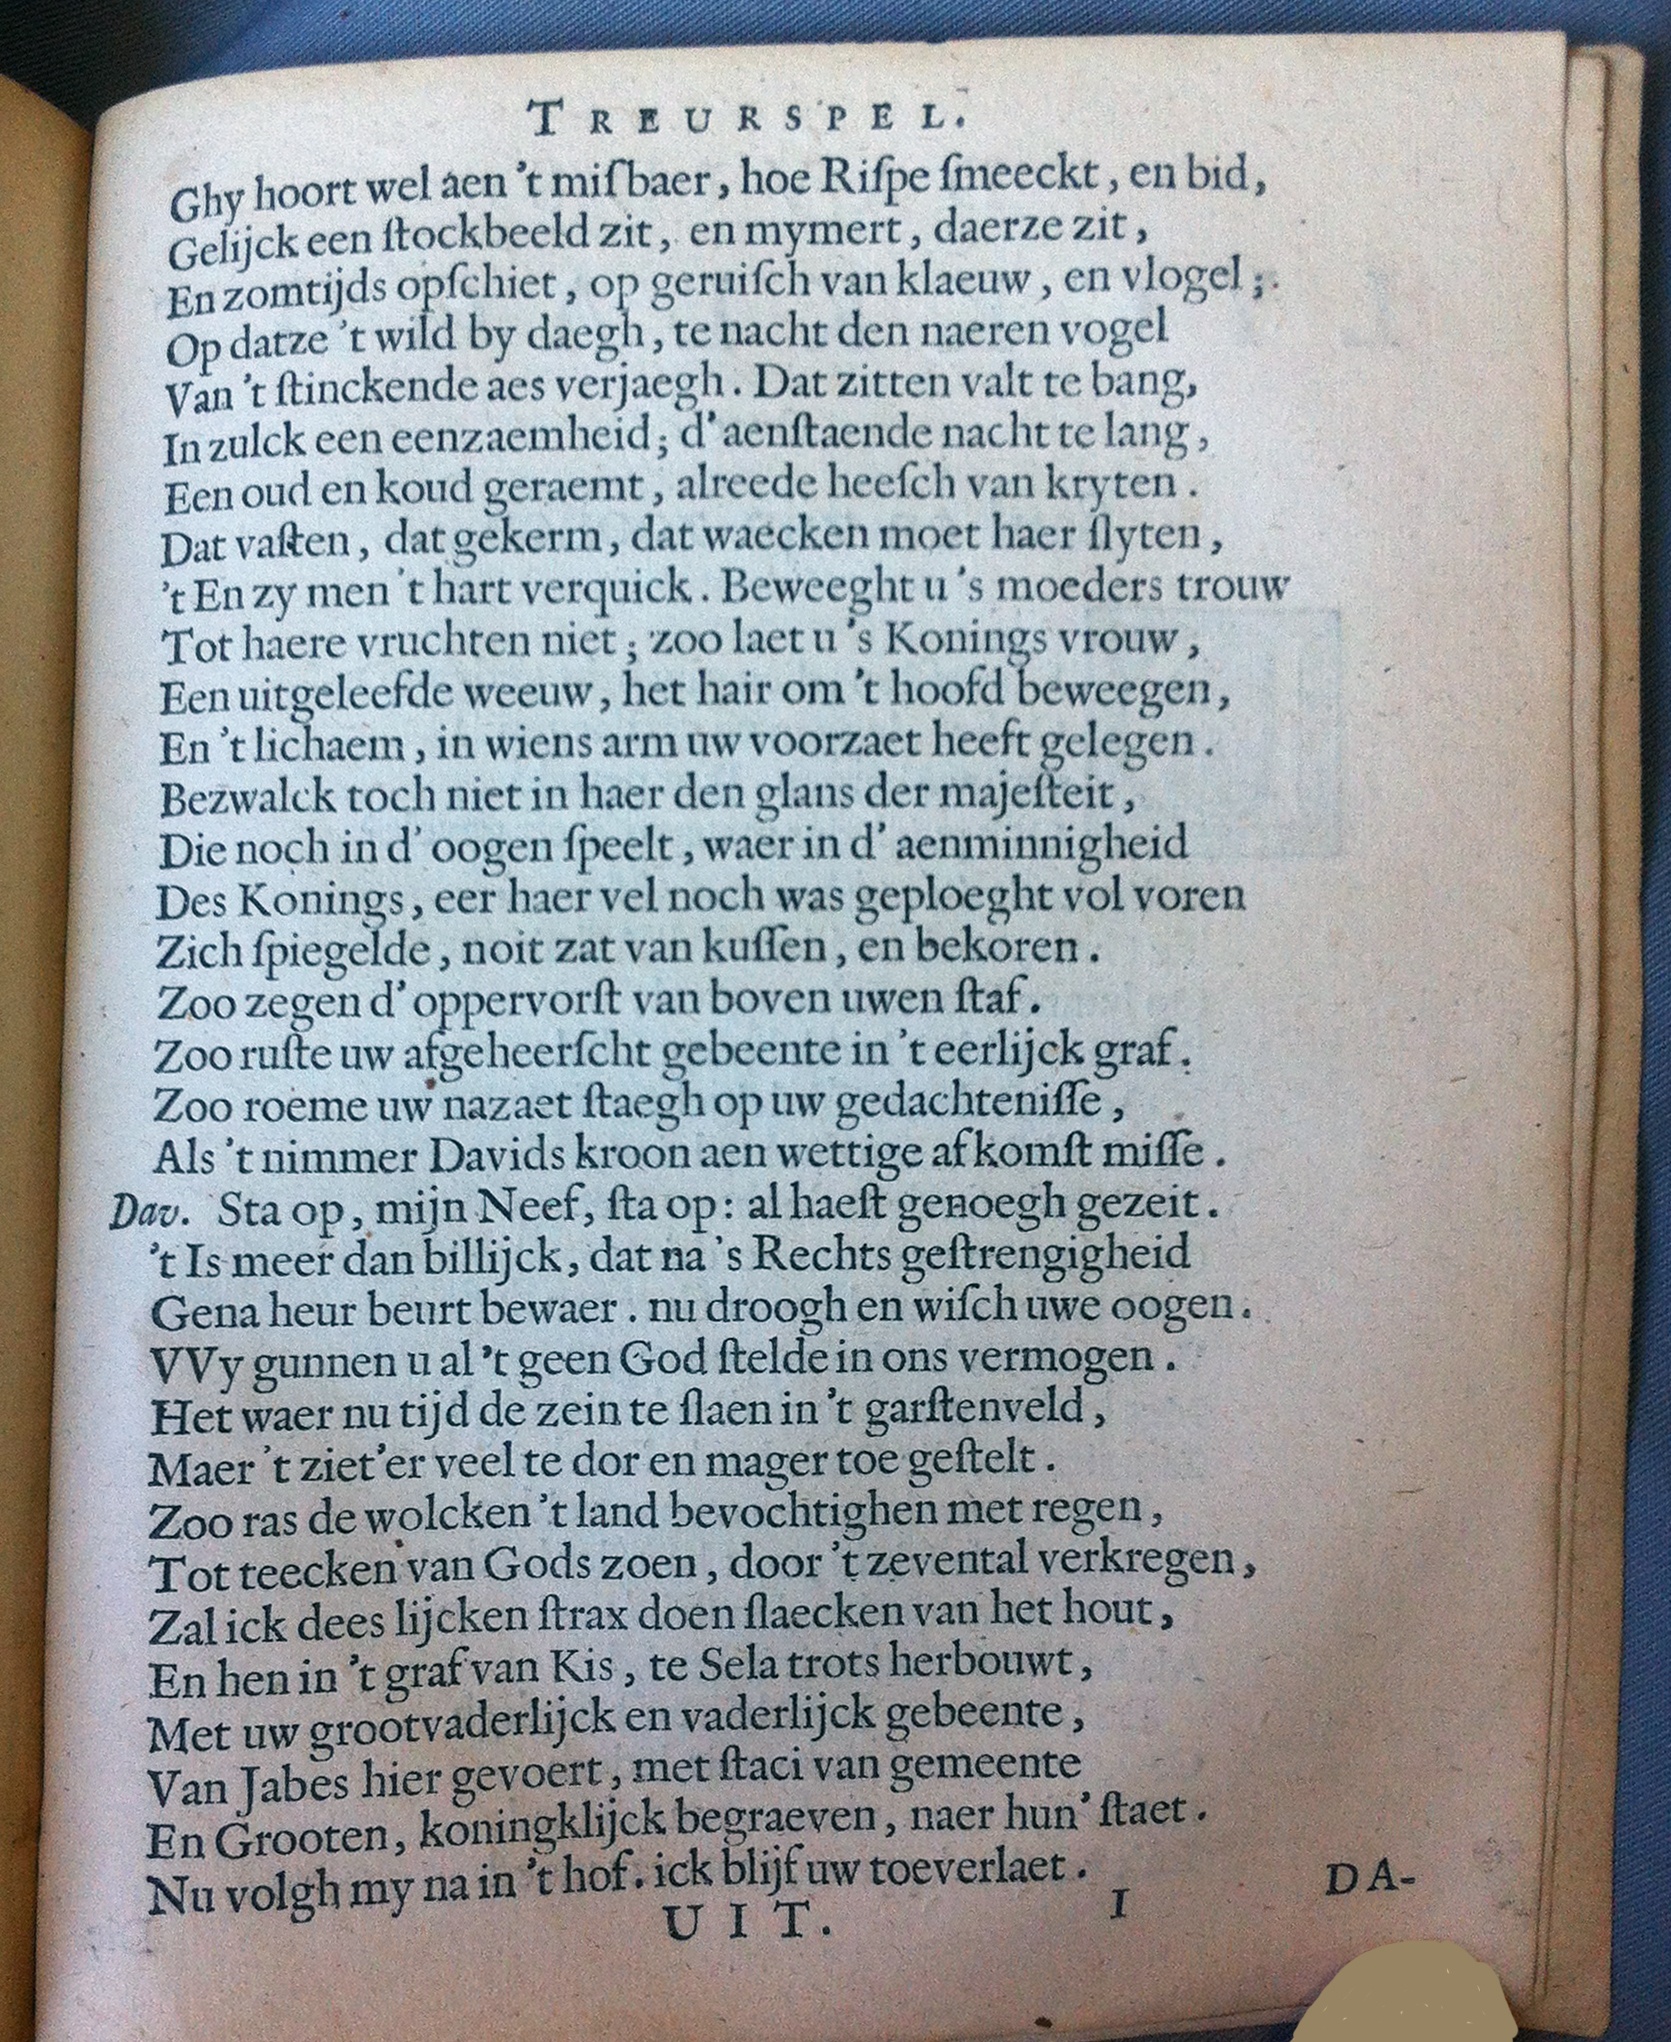 TREURSPEL.
Ghy hoort wel aen 't miſbaer, hoe Riſpe ſmeeckt, en bid,
Gelijck een ſtockbeeld zit, en mymert, daerze zit,
En zomtijds opſchiet, op geruiſch van klaeuw, en vlogel;
Op datze 't wild by daegh, te nacht den naeren vogel
Van 't ſtinckende aes verjaegh. Dat zitten valt te bang,
In zulck een eenzaemheid; d'aenſtaende nacht te lang,
Een oud en koud geraemt, alreede heeſch van kryten.
Dat vaſten, dat gekerm, dat waecken moet haer ſlyten,
't En zy men 't hart verquick. Beweeght u 's moeders trouw
Tot haere vruchten niet; zoo laet u 's Konings vrouw,
Een uitgeleefde weeuw, het hair om 't hoofd beweegen,
En 't lichaem, in wiens arm uw voorzaet heeft gelegen.
Bezwalck toch niet in haer den glans der majeſteit,
Die noch in d' oogen ſpeelt, waer in d' aenminnigheid
Des Konings, eer haer vel noch was geploeght vol voren
Zich ſpiegelde, noit zat van kuſſen, en bekoren.
Zoo zegen d'oppervorſt van boven uwen ſtaf.
Zoo ruſte uw afgeheerſcht gebeente in 't eerlijck graf.
Zoo roeme uw nazaet ſtaegh op uw gedachteniſſe,
Als 't nimmer Davids kroon aen wettige afkomſt miſſe.
Dav. Sta op, mijn Neef, ſta op: al haeſt genoegh gezeit.
't Is meer dan billijck, dat na 's Rechts geſtrengigheid
Gena heur beurt bewaer. nu droogh en wiſch uwe oogen.
VVy gunnen u al 't geen God ſtelde in ons vermogen.
Het waer nu tijd de zein te ſlaen in 't garſtenveld,
Maer 't ziet'er veel te dor en mager toe geſtelt.
Zoo ras de wolcken 't land bevochtighen met regen,
Tot teecken van Gods zoen, door 't zevental verkregen,
Zal ick dees lijcken ſtrax doen ſlaecken van het hout,
En hen in 't graf van Kis, te Sela trots herbouwt,
Met uw grootvaderlijck en vaderlijck gebeente,
Van Jabes hier gevoert, met ſtaci van gemeente
En Grooten, koningklijck begraeven, naer hun' ſtaet.
Nu volgh my na in 't hof. ick blijf uw toeverlaet.
UIT.
I DA-